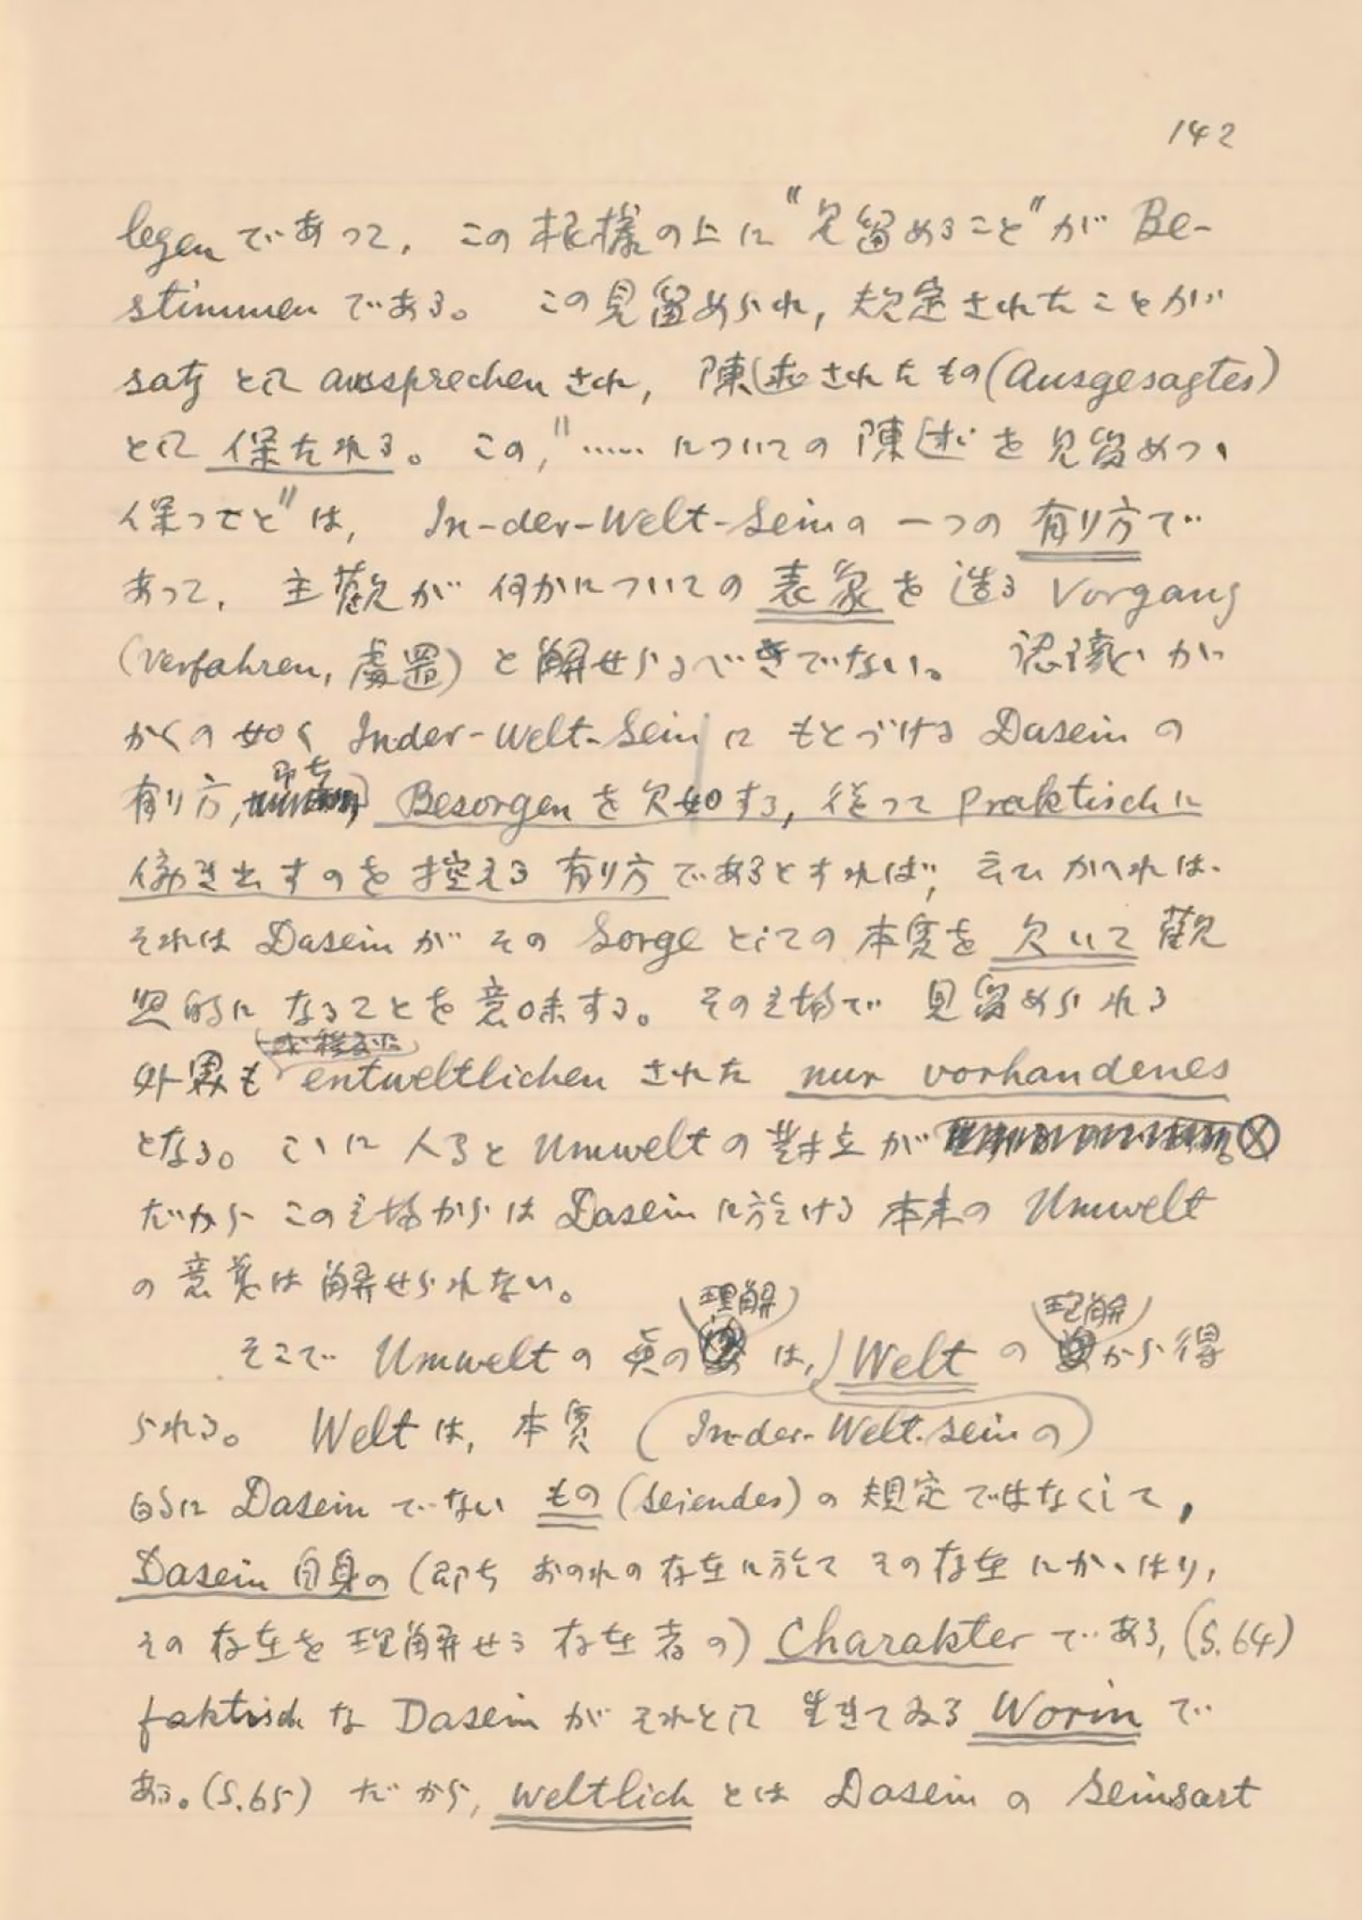 142
legenであって, この根據の上に"見留めること"が Be-
stimmenである。 この見留められ, 規定されたことが
Satzとして aussprechenされ, 陳述されたもの(Ausgesagtes)
として保たれる。 この,"……についての陳述を見留めつゝ
保つこと"は, In-der-Welt-Seinの一つの有り方で
あって, 主觀が何かについての表象を造る Vorgang
(Verfahren, 處置)と解せらるべきでない。 認識が
かくの如く Inder-Welt-Seinにもとづける Daseinの
有り方, 即ち Besorgenを欠如する, 従って praktischに
働き出すのを控える有り方であるとすれば, 云ひかへれば、
それは Daseinがその Sorgeとしての本質を欠いて觀
照的になることを意味する。 その立場で見留められる
外界も entweltlichenされた nur vorhandenes
となる。 こゝに人ると Umweltの對立が ⊗
だから この立場からは Daseinに於ける本来の Umwelt
の意義は解せられない。
そこで Umweltの眞の理解は, Weltの理解から得
られる。 Weltは, 本質 (In-der-Welt-seinの)
的に Daseinでない もの(seiendes)の規定ではなくして,
Dasein自身の(即ちおのれの存在に於てその存在にかゝはり,
その存在を理解せる存在者の) Charakterである, (S.64)
faktischな Daseinがそれとして生きてゐる Worinで
ある。(S.65) だから, weltlichとは Daseinの Seinsart